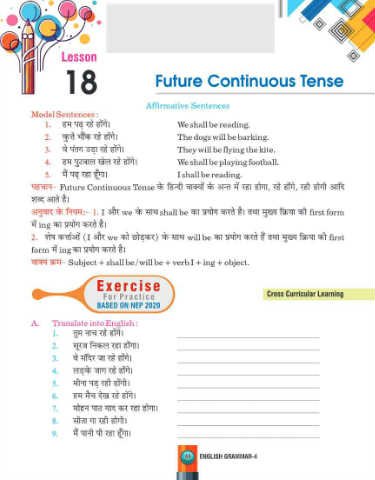 Lesson
18
Future Continuous Tense
Affirmative Sentences
Model Sentences :
1. हम पढ़ रहे होंगे। We shall be reading.
2. कुत्ते भौंक रहे होंगे। The dogs will be barking.
3. वे पतंग उड़ा रहे होंगे। They will be flying the kite.
4. हम फुटबाल खेल रहे होंगे। We shall be playing football.
5. मैं पढ़ रहा हूँगा। I shall be reading.
पहचान- Future Continuous Tense के हिन्दी वाक्यों के अन्त में रहा होगा, रहे होंगे, रही होगी आदि
शब्द आते है।
अनुवाद के नियम:- 1. I और we के साथ shall be का प्रयोग करते है। तथा मुख्य क्रिया की first form
में ing का प्रयोग करते है।
2. शेष कर्त्ताओं (I और we को छोड़कर) के साथ will be का प्रयोग करते हैं तथा मुख्य क्रिया की first
form में ing का प्रयोग करते है।
वाक्य क्रम- Subject + shall be/will be + verb I + ing + object.
Exercise
For Practice
BASED ON NEP 2020
Cross Curricular Learning
A. Translate into English :
1. तुम नाच रहे होंगे।
2. सूरज निकल रहा होगा।
3. वे मंदिर जा रहे होंगे।
4. लड़के जाग रहे होंगे।
5. मीना पढ़ रही होगी।
6. हम मैच देख रहे होंगे।
7. मोहन पाठ याद कर रहा होगा।
8. सीता गा रही होगी।
9. मैं पानी पी रहा हूँगा।
ENGLISH GRAMMAR-4